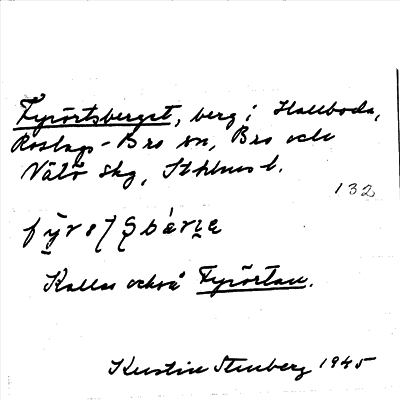 Fyrörtsberget, berg i Hallboda,
Roslags-Bro sn, Bro och
Vätö skg, Sthlms l.
132
Kallas också Fyrörtan.
Kerstin Stenberg 1945